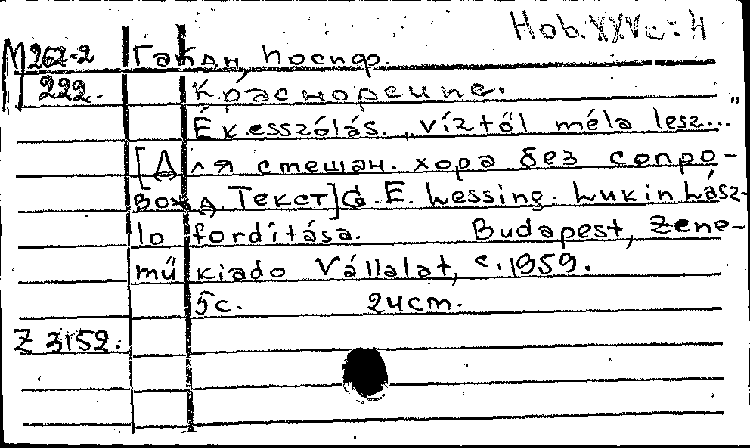 Нов. XXVс-4
М 262-2 Гайдн, Иосиф.
222. Красноречие.
Ékesszólás. „Víztől méla lesz..."
[Для смешан. хора без сопро-
вожд. Текст] G. E. Lessing. Lukin Lász-
lo fordítása. Budapest, Zene-
mű kiado Vállalat, c. 1959.
5c. 24cm.
Z 3152.